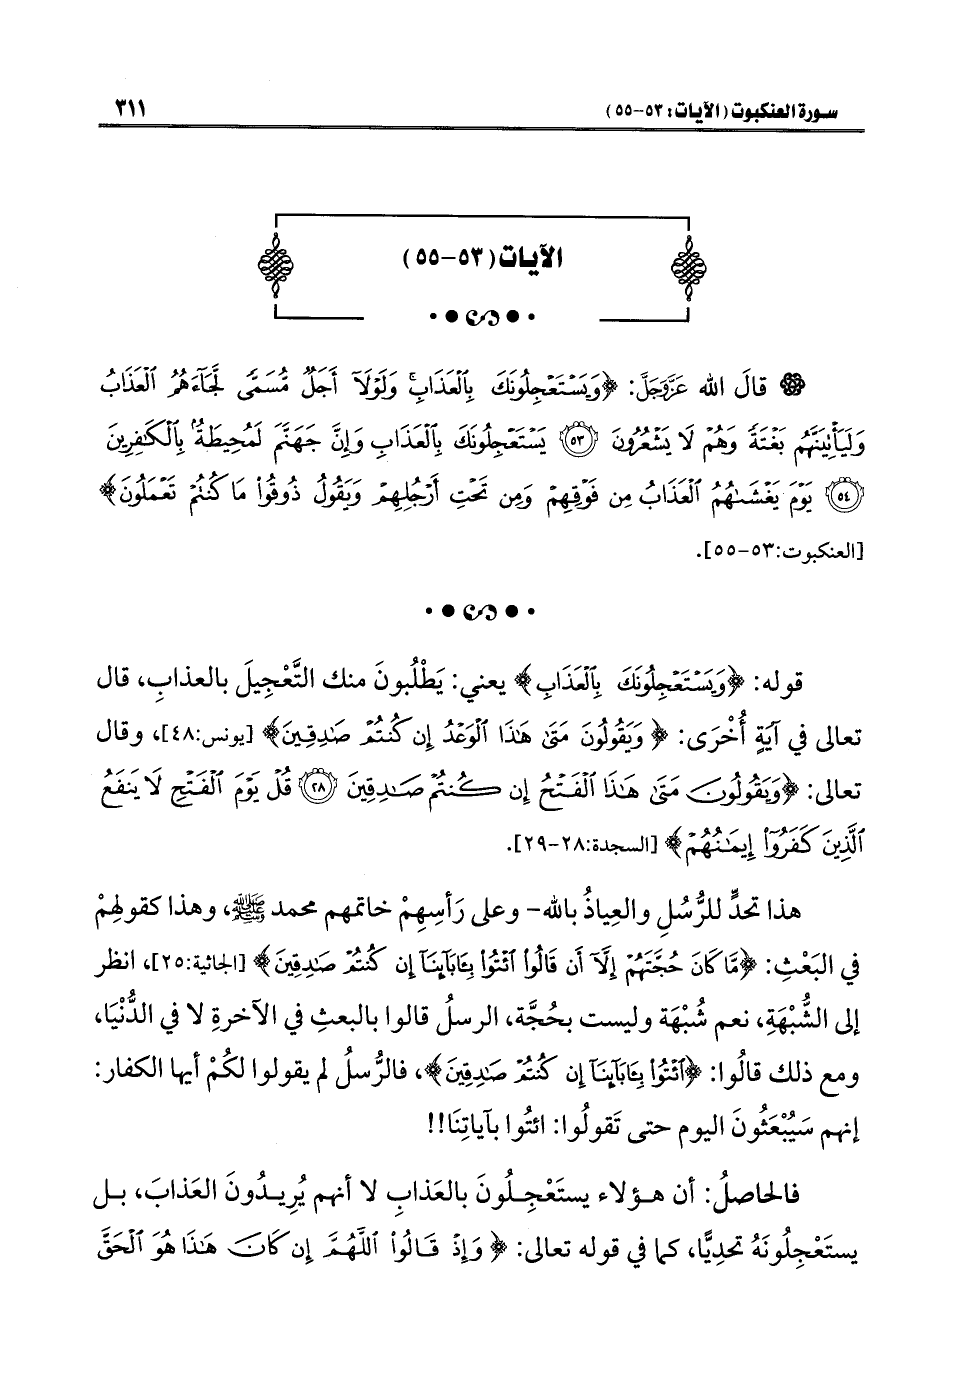 سورة العنكبوت (الآيات: ٥٣-٥٥)
٣١١
الآيات (٥٣-٥٥)
قالَ الله عَزَّوَجَلَّ: ﴿وَيَسْتَعْجِلُونَكَ بِالْعَذَابِ ۚ وَلَوْلَا أَجَلٌ مُّسَمًّى لَّجَاءَهُمُ الْعَذَابُ
وَلَيَأْتِيَنَّهُم بَغْتَةً وَهُمْ لَا يَشْعُرُونَ ﴿٥٣﴾ يَسْتَعْجِلُونَكَ بِالْعَذَابِ وَإِنَّ جَهَنَّمَ لَمُحِيطَةٌ بِالْكَافِرِينَ
﴿٥٤﴾ يَوْمَ يَغْشَاهُمُ الْعَذَابُ مِن فَوْقِهِمْ وَمِن تَحْتِ أَرْجُلِهِمْ وَيَقُولُ ذُوقُوا مَا كُنتُمْ تَعْمَلُونَ﴾
[العنكبوت:٥٣-٥٥].
قوله: ﴿وَيَسْتَعْجِلُونَكَ بِالْعَذَابِ﴾ يعني: يَطْلُبونَ منك التَّعْجِيلَ بالعذابِ، قال
تعالى في آيَةٍ أُخْرَى: ﴿وَيَقُولُونَ مَتَىٰ هَٰذَا الْوَعْدُ إِن كُنتُمْ صَادِقِينَ﴾ [يونس:٤٨]، وقال
تعالى: ﴿وَيَقُولُونَ مَتَىٰ هَٰذَا الْفَتْحُ إِن كُنتُمْ صَادِقِينَ ﴿٢٨﴾ قُلْ يَوْمَ الْفَتْحِ لَا يَنفَعُ
الَّذِينَ كَفَرُوا إِيمَانُهُمْ﴾ [السجدة:٢٨-٢٩].
هذا تحدٍّ للرُّسُلِ والعِياذُ بالله- وعلى رَأسِهِمْ خاتمهم محمد ﷺ، وهذا كقولِهِمْ
في البَعْثِ: ﴿مَّا كَانَ حُجَّتَهُمْ إِلَّا أَن قَالُوا ائْتُوا بِآبَائِنَا إِن كُنتُمْ صَادِقِينَ﴾ [الجاثية:٢٥]، انظر
إلى الشُّبْهَةِ، نعم شُبْهَة وليست بحُجَّة، الرسلُ قالوا بالبعثِ في الآخرةِ لا في الدُّنْيَا،
ومع ذلك قالُوا: ﴿ائْتُوا بِآبَائِنَا إِن كُنتُمْ صَادِقِينَ﴾، فالرُّسلُ لم يقولوا لكُمْ أيها الكفار:
إنهم سَيُبْعَثُونَ اليوم حتى تَقولُوا: ائتُوا بآياتِنَا!!
فالحاصلُ: أن هؤلاء يستَعْجِلُونَ بالعَذابِ لا أنهم يُرِيدُونَ العَذابَ، بل
يستَعْجِلُونَهُ تحدِيًّا، كما في قوله تعالى: ﴿وَإِذْ قَالُوا اللَّهُمَّ إِن كَانَ هَٰذَا هُوَ الْحَقَّ